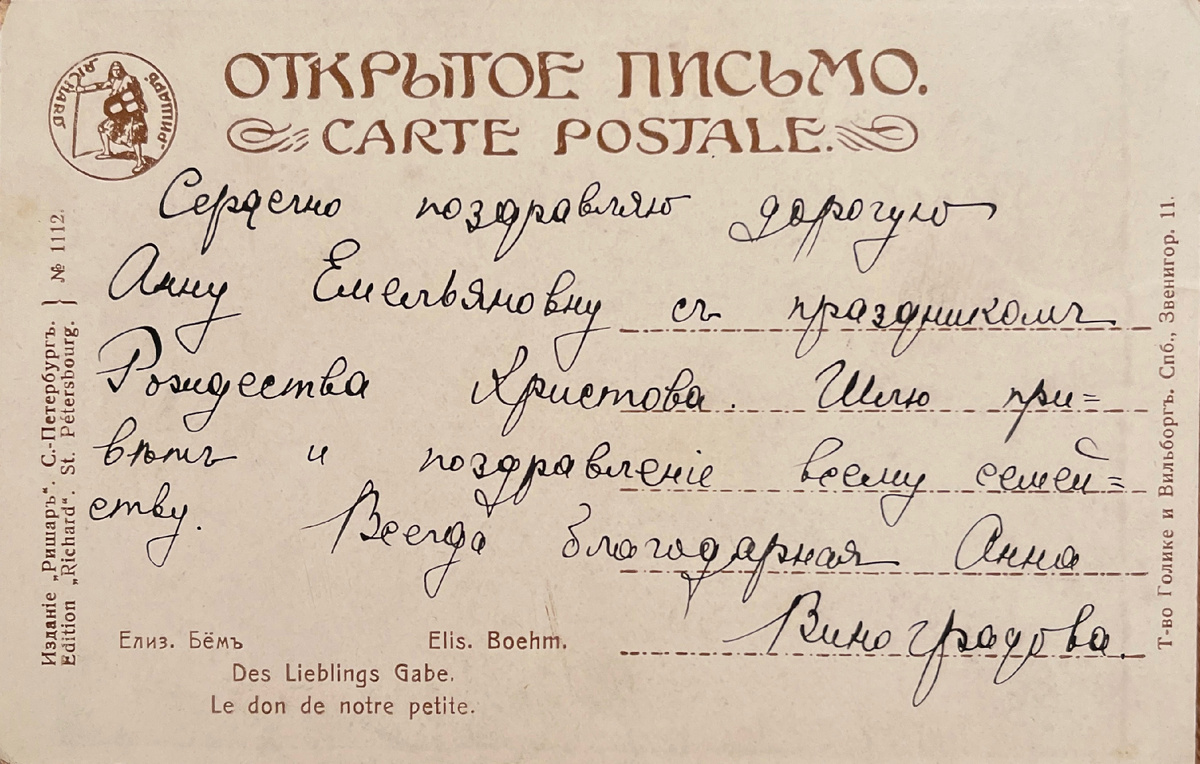 RICHARD РИШАРЪ
ОТКРЫТОЕ ПИСЬМО.
CARTE POSTALE.
Сердечно поздравляю дорогую
Анну Емельяновну съ праздникомъ
Рождества Христова. Шлю при=
вѣтъ и поздравленіе всему семей=
ству. Всегда благодарная Анна
Виноградова.
Елиз. Бёмъ Elis. Boehm.
Des Lieblings Gabe.
Le don de notre petite.
Изданіе „Ришаръ“. С.-Петербургъ. } № 1112.
Edition „Richard“. St. Pétersbourg.
Т-во Голике и Вильборгъ. Спб., Звенигор. 11.